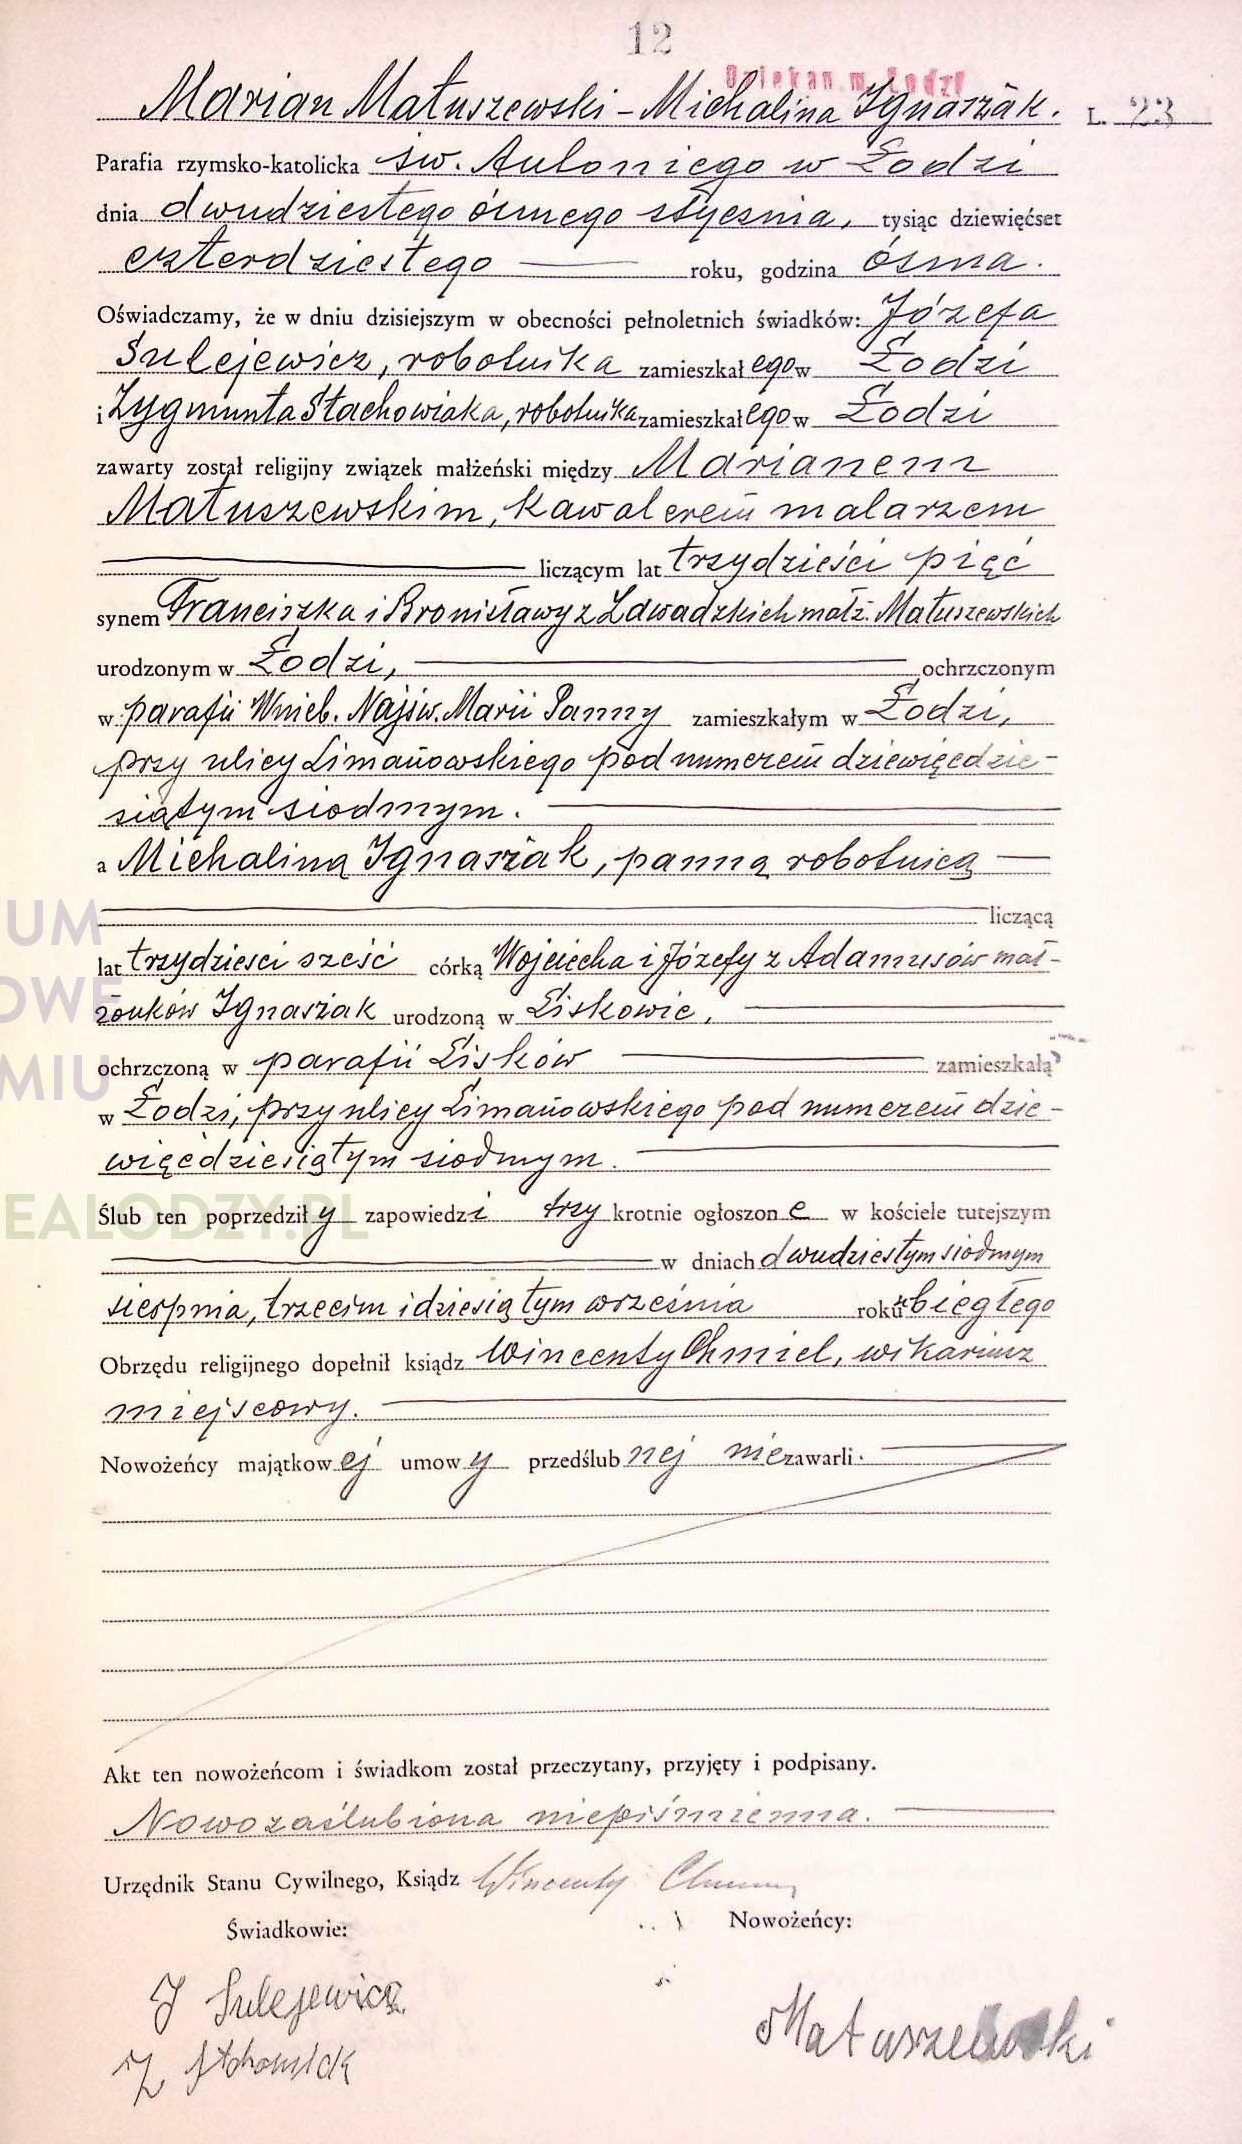 12
Dziekan m. Łodzi
Marian Matuszewski - Michalina Ignasiak. L. 23
Parafia rzymsko-katolicka św. Antoniego w Łodzi
dnia dwudziestego ósmego stycznia, tysiąc dziewięćset
czterdziestego roku, godzina ósma.
Oświadczamy, że w dniu dzisiejszym w obecności pełnoletnich świadków: Józefa
Sulejewicz, robotnika zamieszkałego w Łodzi
i Zygmunta Stachowiaka, robotnika zamieszkałego w Łodzi
zawarty został religijny związek małżeński między Marianem
Matuszewskim, kawalerem malarzem
liczącym lat trzydzieści pięć
synem Franciszka i Bronisławy z małż. Matuszewskich
urodzonym w Łodzi, ochrzczonym
w parafii Wnieb. Najśw. Marii Panny zamieszkałym w Łodzi,
przy ulicy Limanowskiego pod numerem dziewięćdzie-
siątym siódmym.
a Michaliną Ignasiak, panną robotnicą
liczącą
lat trzydzieści sześć córką Wojciecha i Józefy z Adamusów mał-
żonków Ignasiak urodzoną w Liskowie,
ochrzczoną w parafii Lisków zamieszkałą
w Łodzi, przy ulicy Limanowskiego pod numerem dzie-
więćdziesiątym siódmym.
Ślub ten poprzedziły zapowiedzi trzykrotnie ogłoszone w kościele tutejszym
w dniach dwudziestym siódmym
sierpnia, trzecim i dziesiątym września roku ubiegłego
Obrzędu religijnego dopełnił ksiądz Wincenty Chmiel, wikariusz
miejscowy.
Nowożeńcy majątkowej umowy przedślubnej nie zawarli.
Akt ten nowożeńcom i świadkom został przeczytany, przyjęty i podpisany.
Nowozaślubiona niepiśmienna.
Urzędnik Stanu Cywilnego, Ksiądz Wincenty Chmiel
Świadkowie: Nowożeńcy:
J Sulejewicz
Matuszewski
Z Stachowiak
UM
OWE
MIU
EALODZY.PL